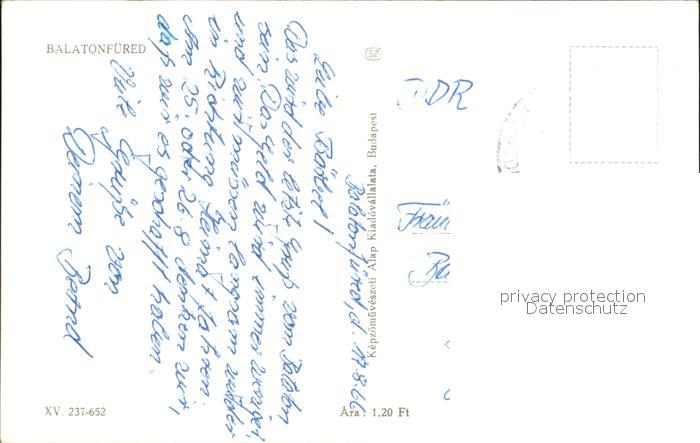 BALATONFÜRED
SZ
Balatonfüred, d. 17.8.66
Liebe Bärbel!
Das wird der letzte Gruß vom Balaton
sein. Das Geld wird immer weniger
und wir müssen langsam wieder
in Richtung Heimat fahren.
Am 25. oder 26.8 denken wir,
daß wir es geschafft haben.
Viele Grüße von
Deinem Bernd
Képzőművészeti Alap Kiadóvállalata, Budapest
DDR
privacy protection
Datenschutz
XV. 237-652
Ára: 1,20 Ft